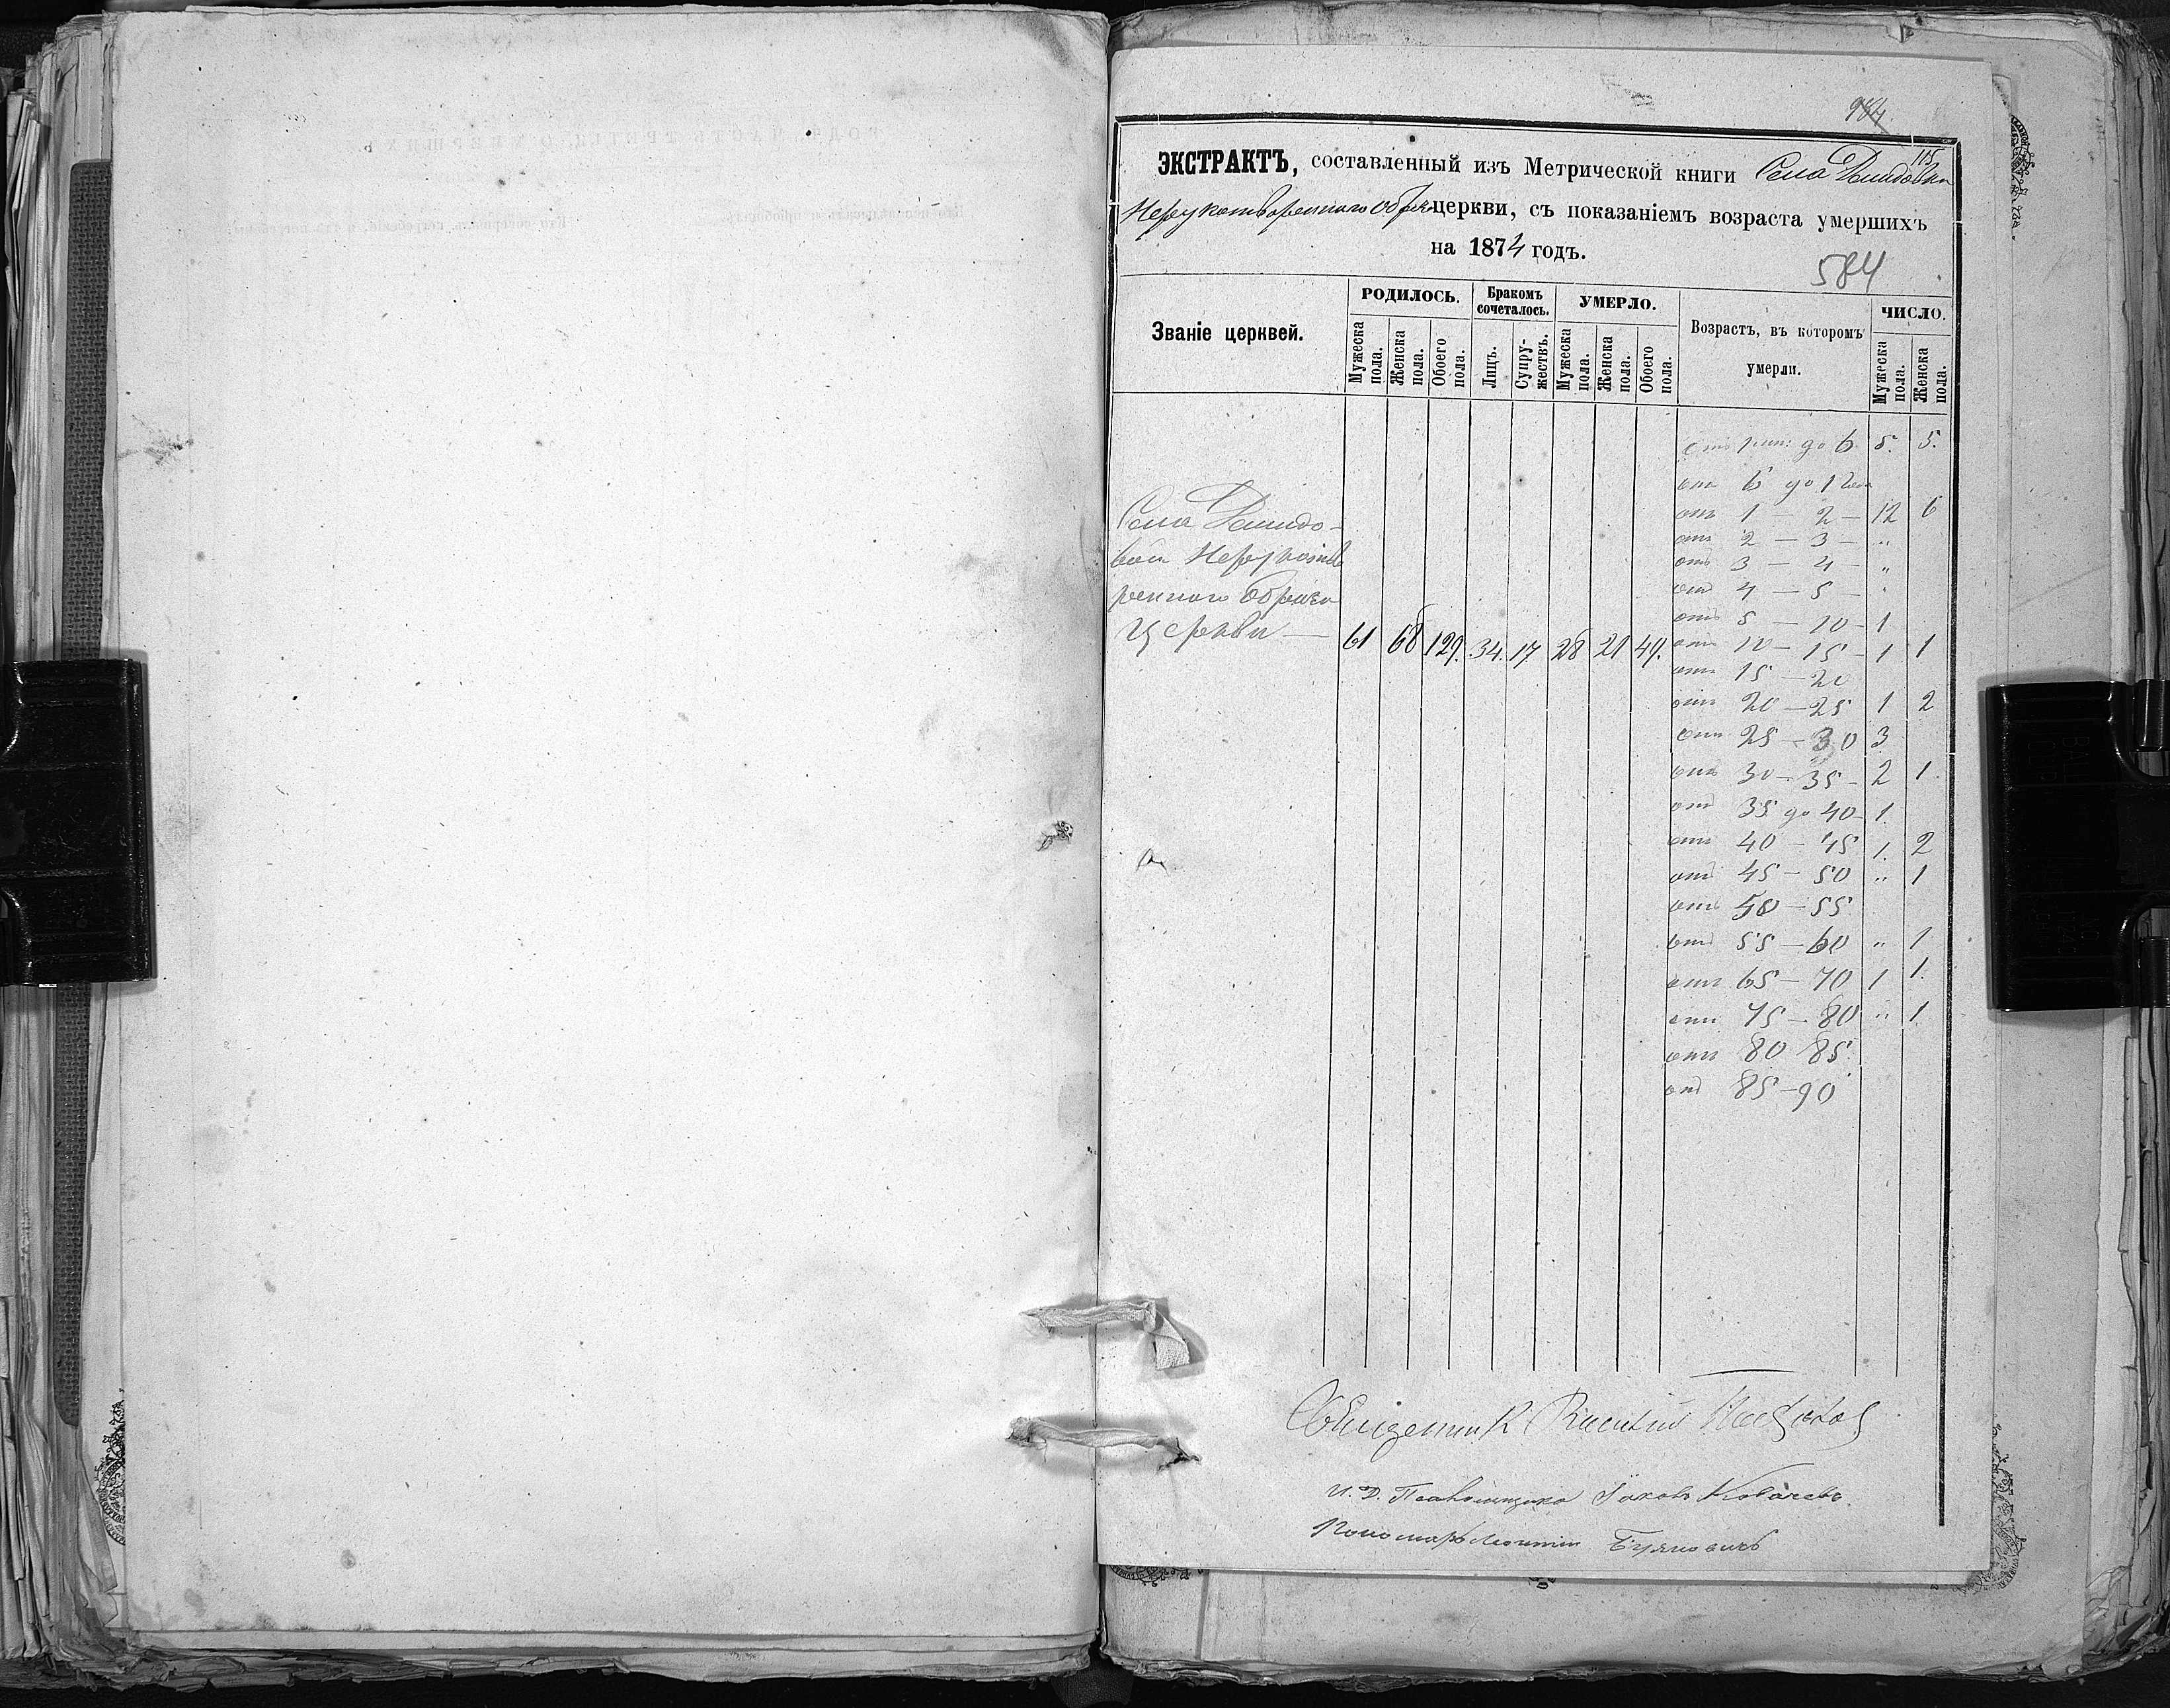 984
115
ЭКСТРАКТЪ, составленный изъ Метрической книги Села Демидовки
Нерукотвореннаго образа церкви, съ показаніемъ возраста умершихъ
на 1874 годъ.
584
Званіе церквей.
РОДИЛОСЬ.
Мужеска пола.
Женска пола.
Обоего пола.
Бракомъ сочеталось.
Лицъ.
Супружествъ.
УМЕРЛО.
Мужеска пола.
Женска пола.
Обоего пола.
Возрастъ, въ которомъ умерли.
ЧИСЛО.
Мужеска пола.
Женска пола.
Села Демидо-
вки Нерукотво
реннаго Образа
Церкви — 61 68 129. 34. 17 28 21 49.
отъ до 6 5. 5.
отъ 6 до 1
отъ 1 — 2 — 12 6
отъ 2 — 3 — "
отъ 3 — 4 — "
отъ 4 — 5 — "
отъ 5 — 10 — 1
отъ 10 — 15 — 1 1
отъ 15 — 20
отъ 20 — 25 1 2
отъ 25 — 30 3
отъ 30 — 35 — 2 1.
отъ 35 до 40 — 1.
отъ 40 — 45 1. 2
отъ 45 — 50 " 1
отъ 50 — 55
отъ 55 — 60 " 1
отъ 65 — 70 1 1.
отъ 75 — 80 " 1
отъ 80 85.
отъ 85 — 90
Священник Василий
И. Д. Псаломщика Іаковъ
Пономарь Леонтій